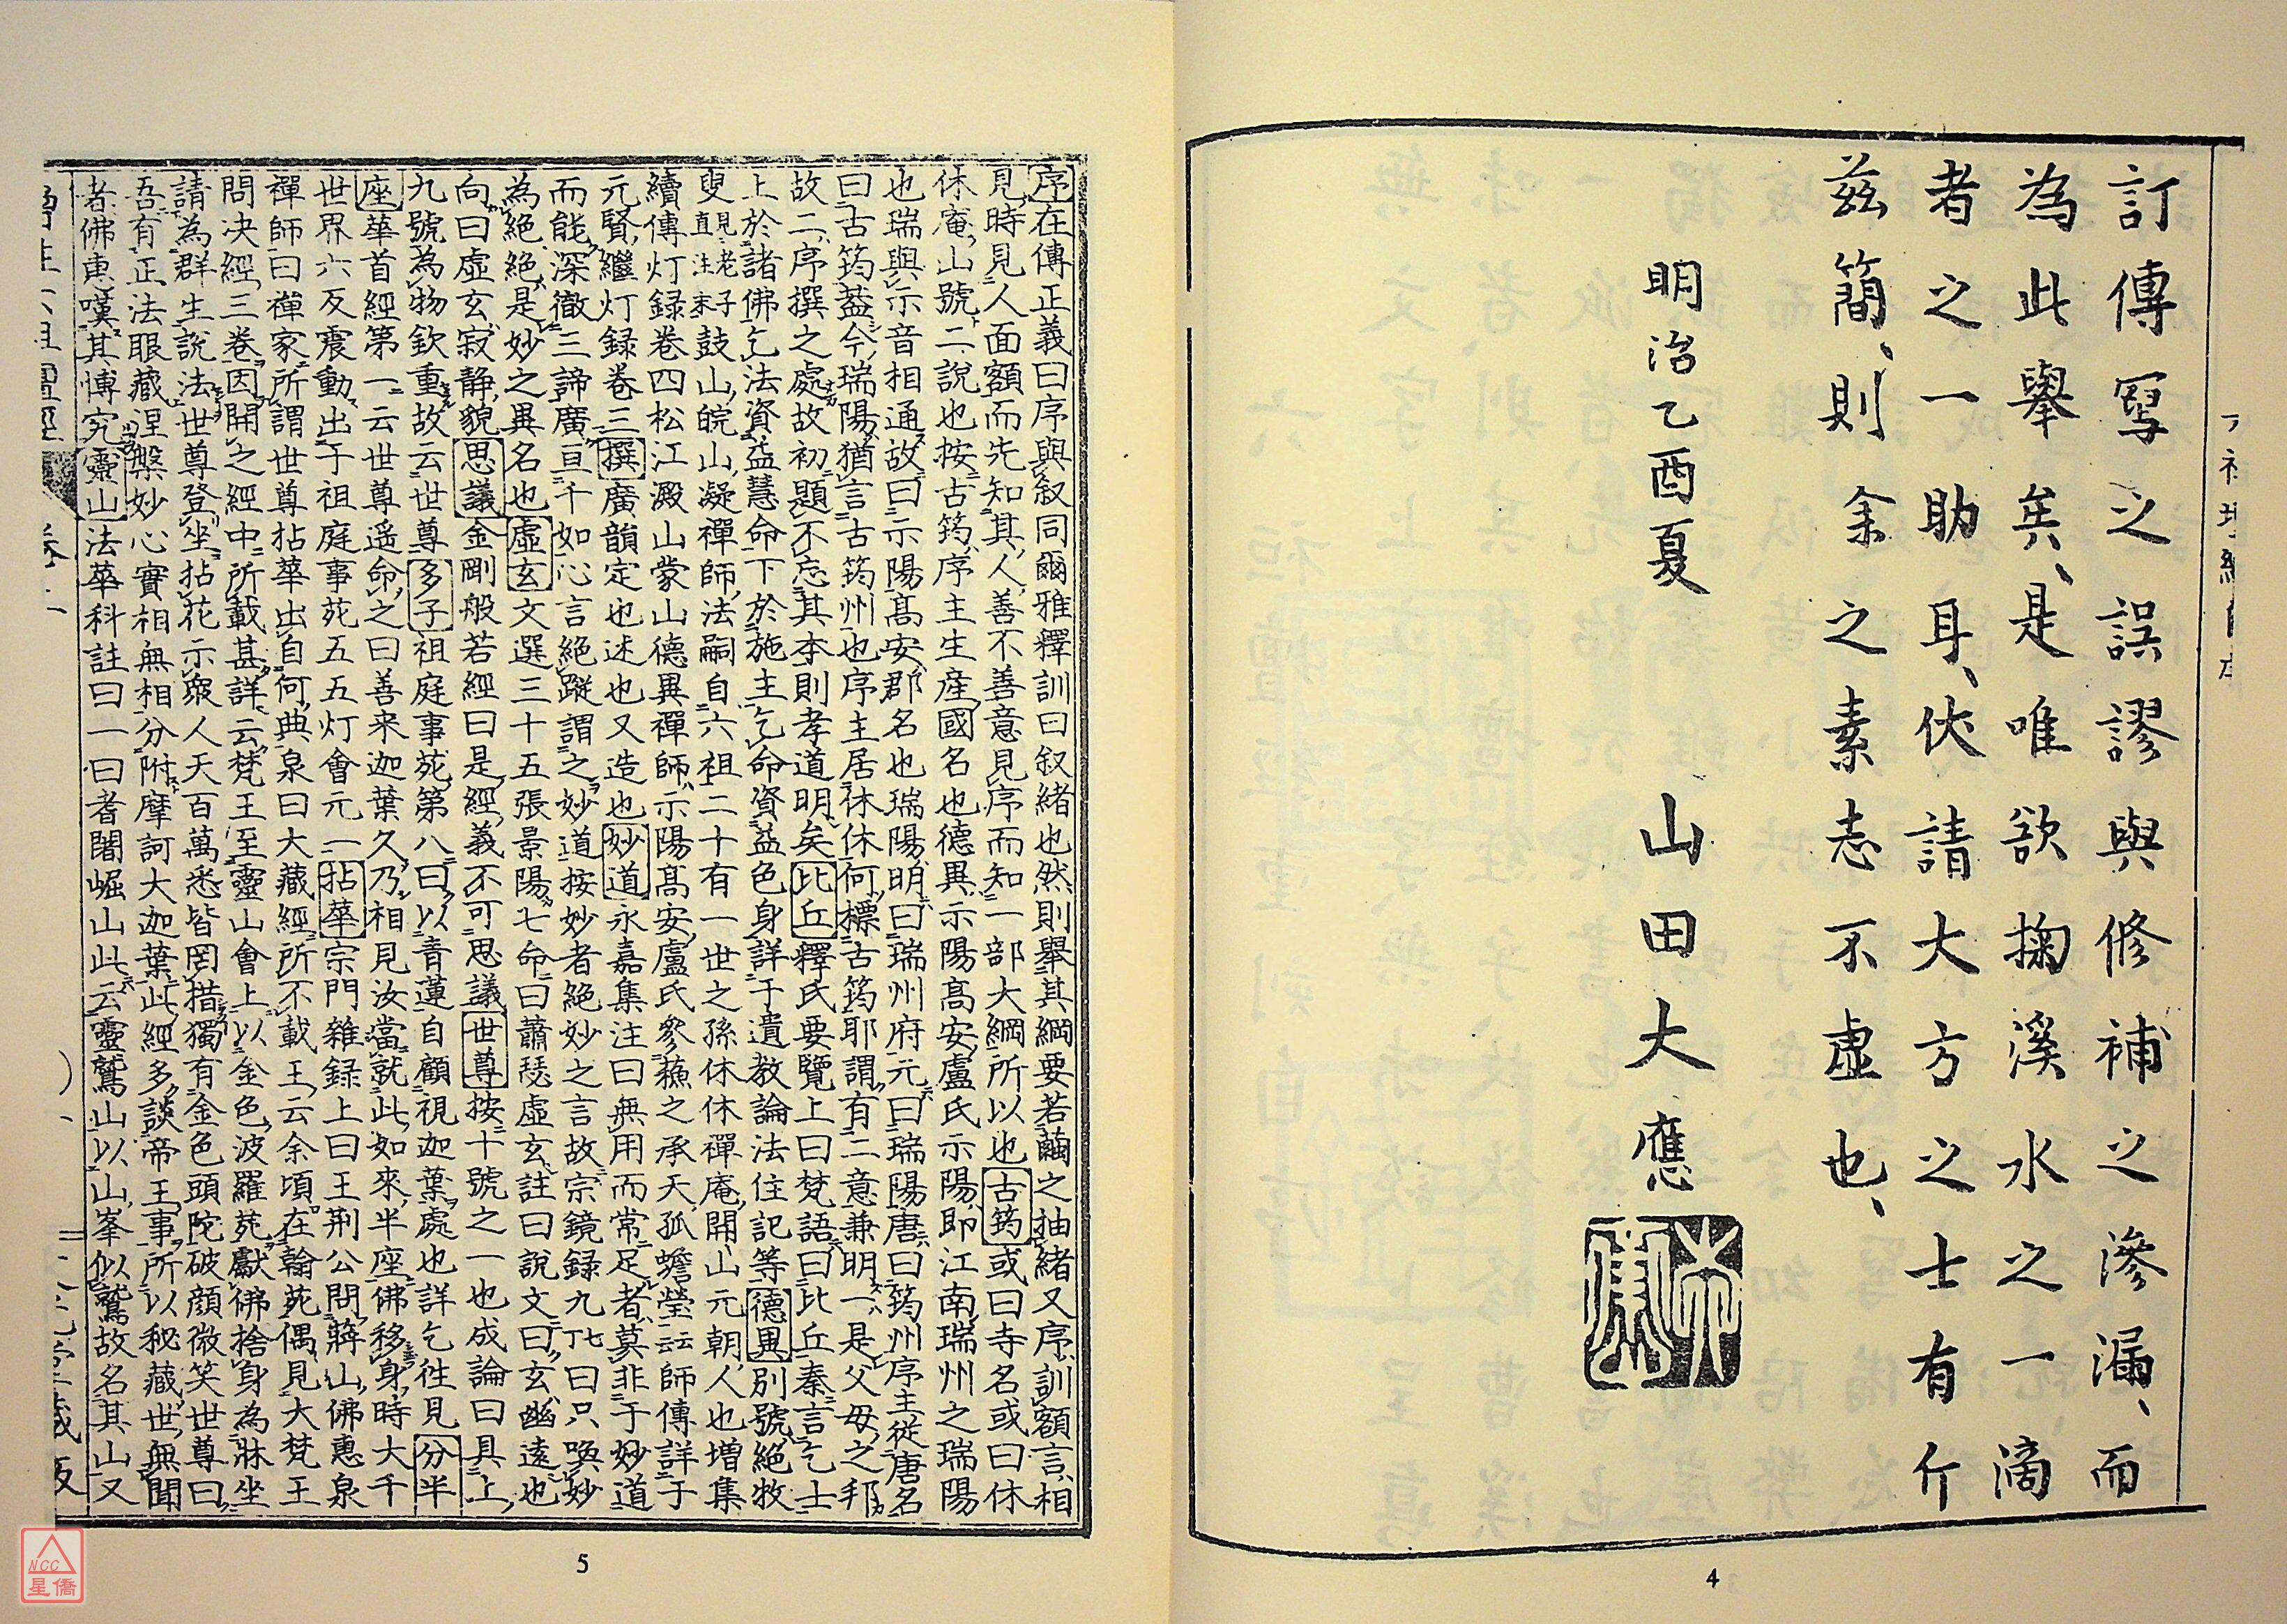 訂傳寫之誤謬與修補之滲漏、而
為此舉矣、是唯欲掬溪水之一滴
者之一助耳、伏請大方之士有斤
茲簡、則余之素志不虛也、
明治乙酉夏 山田大應
4
序在傳正義曰序與叙同爾雅釋訓曰叙緒也然則舉其綱要若繭之抽緒又序訓額言相
見時見人面額而先知其人善不善意見序而知一部大綱所以也古筠或曰寺名或曰休
休庵山號二説也按古筠序主生産國名也德異示陽髙安盧氏示陽即江南瑞州之瑞陽
也瑞與示音相通故曰示陽髙安郡名也瑞陽明曰瑞州府元曰瑞陽唐曰筠州序主従唐名
曰古筠葢今瑞陽猶言古筠州也序主居休休何標古筠耶謂有二意兼明一是父母之邦
故二序撰之處故初題不忘其本則孝道明矣比丘釋氏要覽上曰梵語曰比丘秦言乞士
上於諸佛乞法資益慧命下於施主乞命資益色身詳于遺教論法住記等德異別號絕牧
叟直見注老末子鼓山皖山凝禪師法嗣自六祖二十有一世之孫休休禪庵開山元朝人也増集
續傳灯録卷四松江澱山蒙山德異禪師示陽髙安盧氏參蘓之承天孤蟾瑩云云師傳詳于
元賢繼灯録卷三撰廣韻定也述也又造也妙道永嘉集注曰無用而常足者莫非于妙道
而能深徹三諦廣亘千如心言絕蹤謂之妙道按妙者絕妙之言故宗鏡録九曰只喚妙
為絕絕是妙之異名也虛玄文選三十五張景陽七命曰蕭瑟虛玄註曰説文曰玄幽遠也
向曰虛玄寂静貌思議金剛般若經曰是經義不可思議世尊按十號之一也成論曰具上
九號為物欽重故云世尊多子祖庭事苑第八曰以青蓮自顧視迦葉處也詳乞徃見分半
座華首經第一云世尊遥命之曰善来迦葉久乃相見汝當就此如來半座佛移身時大千
世界六反震動出于祖庭事苑五五灯會元一拈華宗門雜録上曰王荆公問蔣山佛惠泉
禪師曰禪家所謂世尊拈華出自何典泉曰大藏經所不載王云余頃在翰苑偶見大梵王
問决經三卷因開之經中所載甚詳云梵王至靈山會上以金色波羅苑獻佛捨身為牀坐
請為群生説法世尊登坐拈花示衆人天百萬悉皆罔措獨有金色頭陀破顔微笑世尊曰
吾有正法眼藏涅槃妙心實相無相分附摩訶大迦葉此經多談帝王事所以秘藏世無聞
者佛惠嘆其博究靈山法華科註曰一曰者闍崛山此云靈鷲山以山峯似鷲故名其山又
5
NCC
星僑